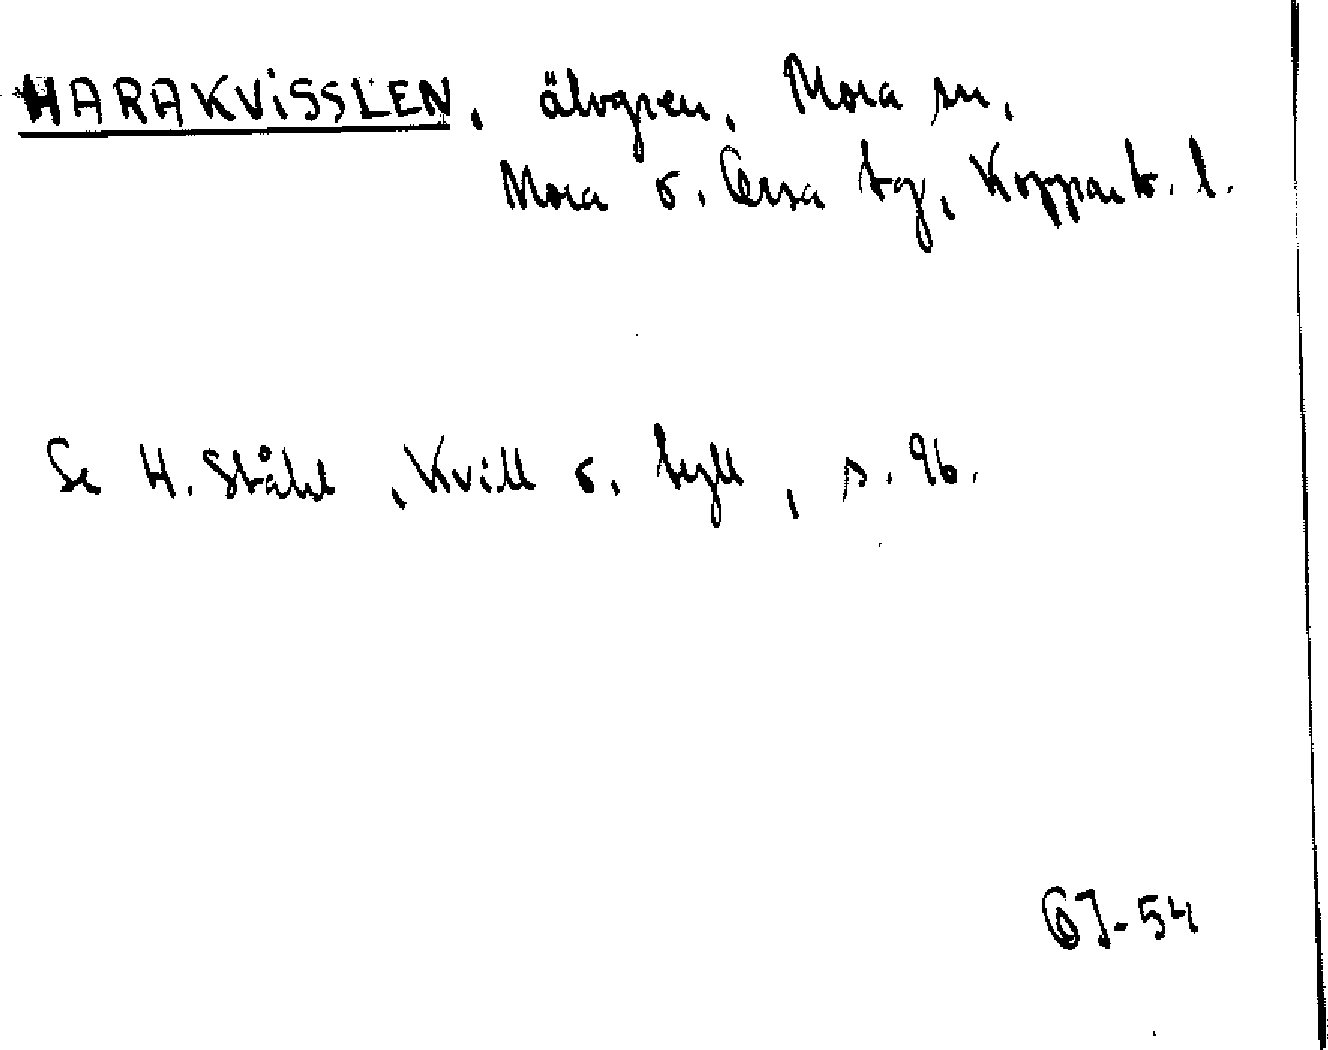 HARAKVISSLEN, älvgren, Mora sn,
Mora o. Orsa tg, Kopparb. l.
Se H. Ståhl, Kvill o. tyll, s. 96.
67-54